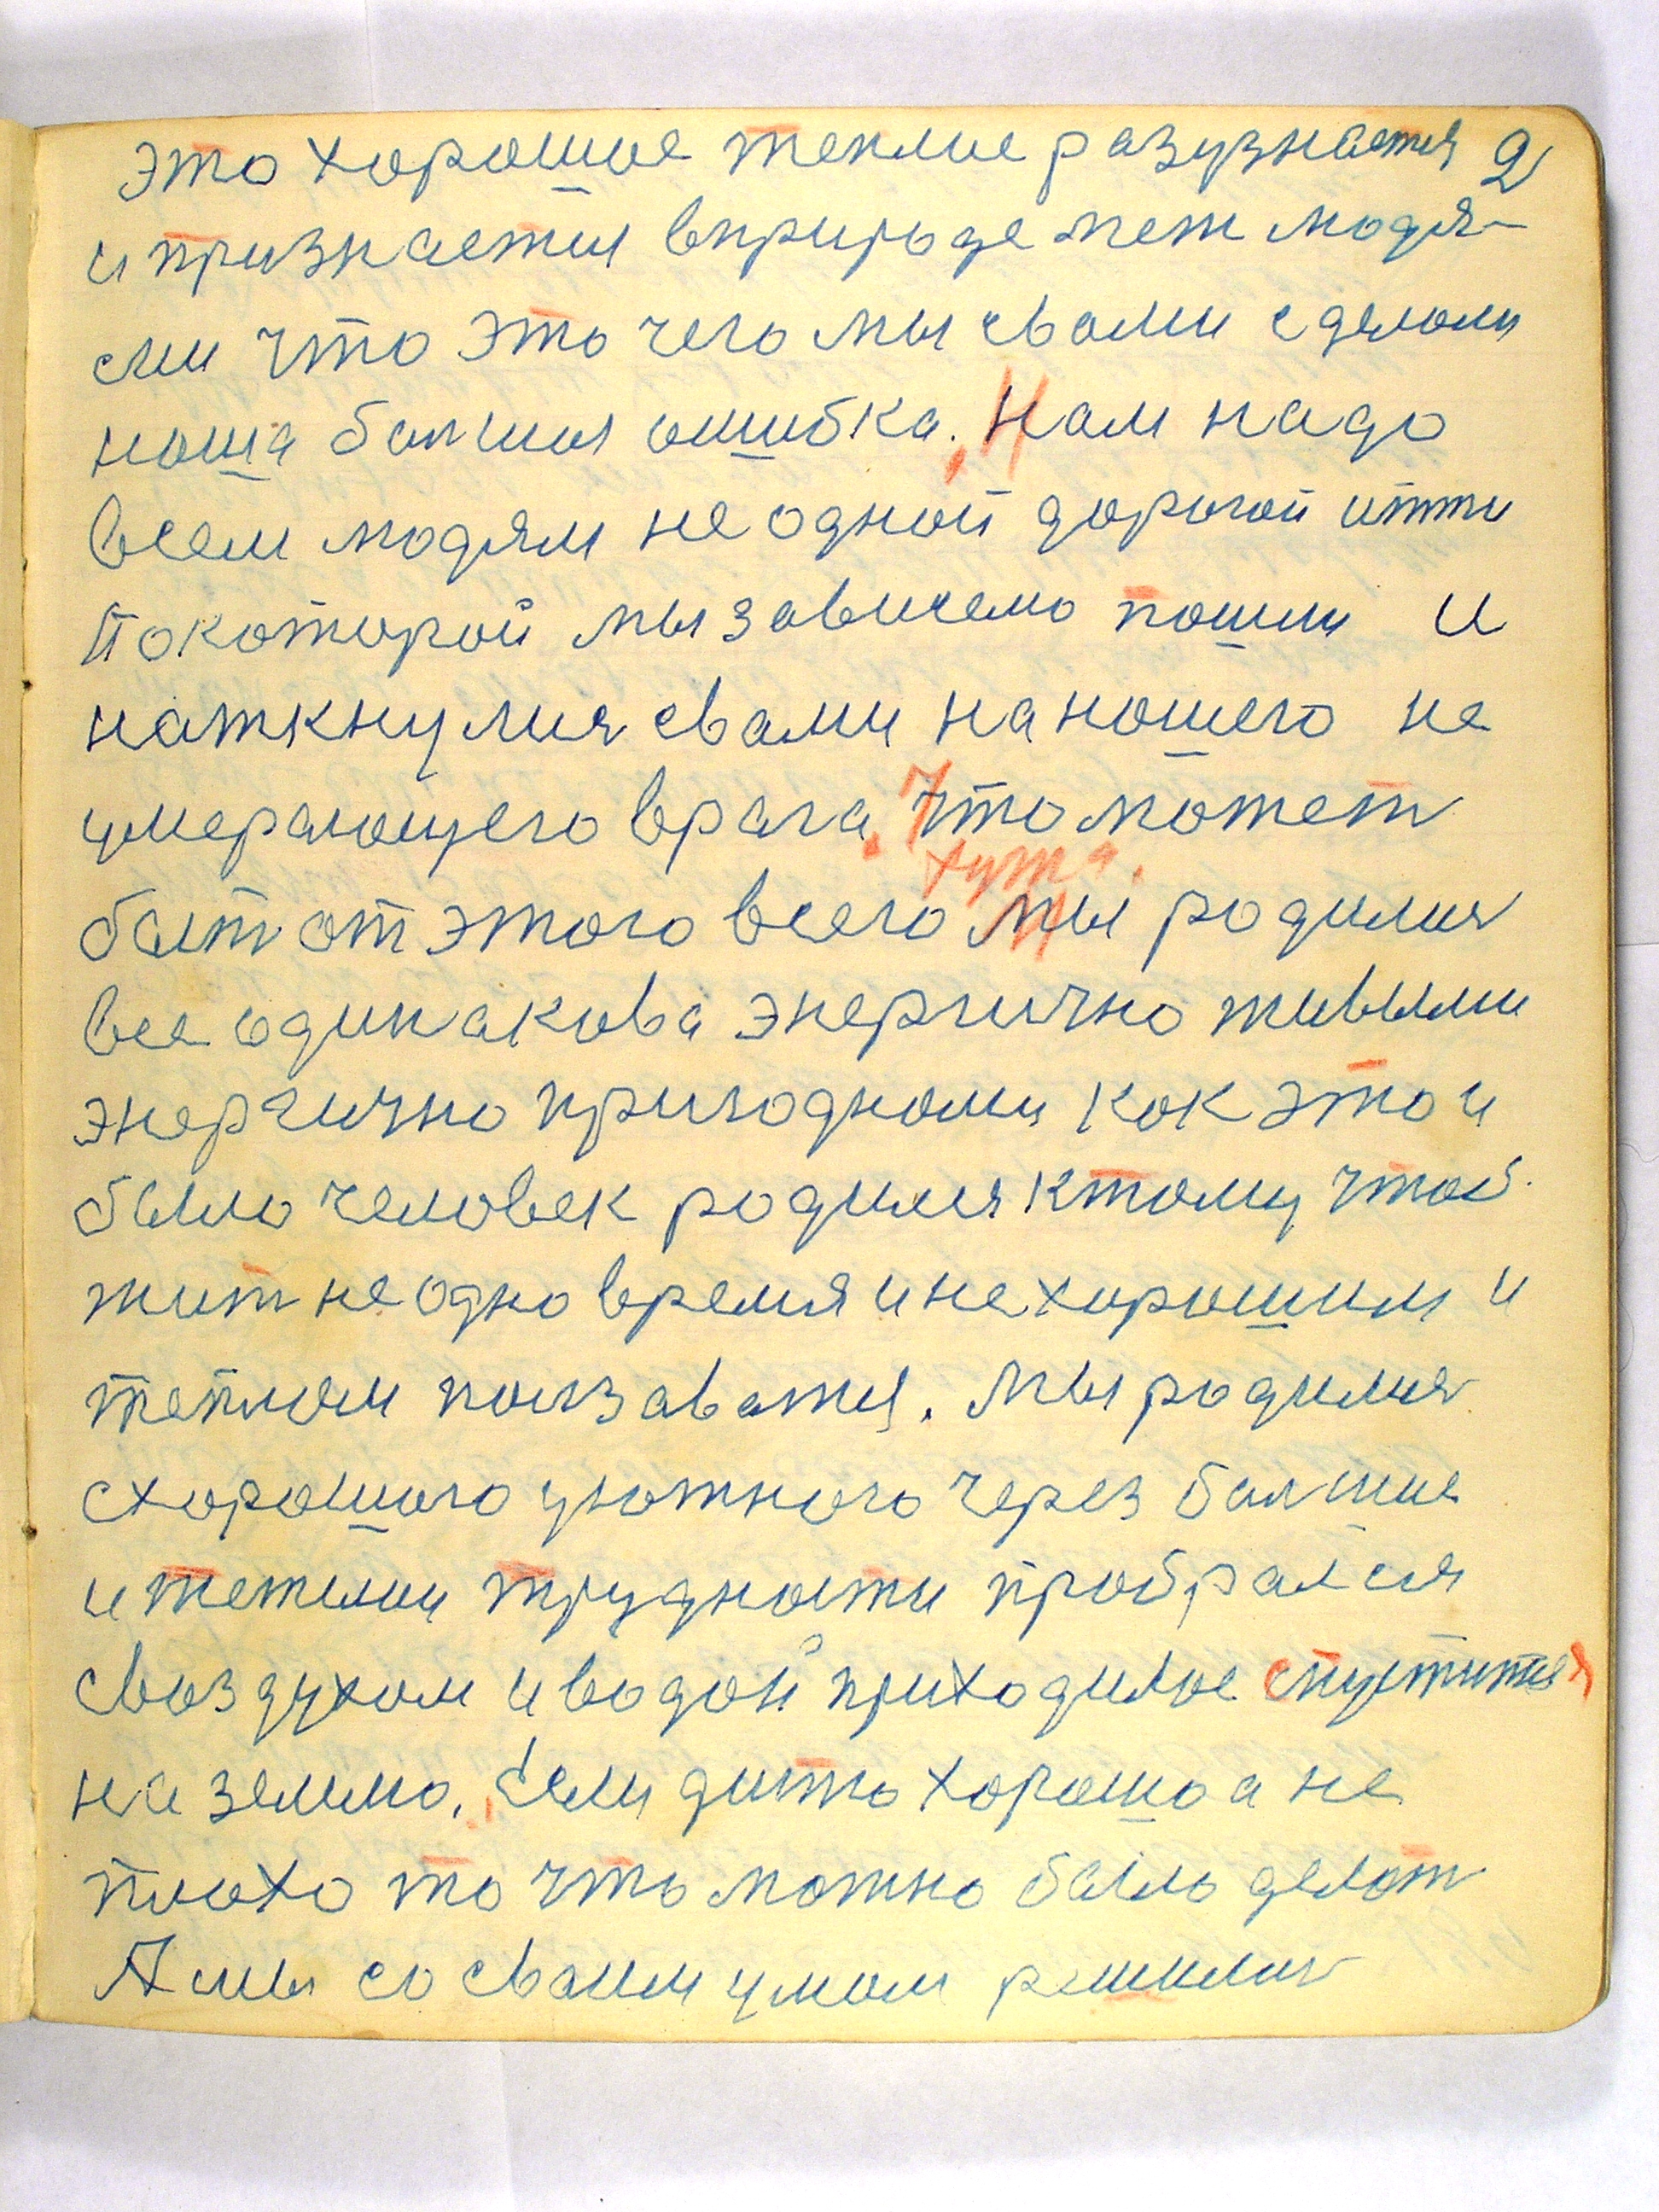 это хорошое теплые разузнается 2
и признается вприроде пет людя-
ми что это чего мы свами сделали
наша балшая ошибка. Нам надо
всем людям не одной дорогой итти
покоторой мы зависемо пошли и
наткнулися свами на нашего не
умерающего врага. Что может
хужа.
быт от этого всего мы родилися
все одинакова энергично живыми
энергично пригодными как это и
было человек родился ктому чтоб
жит не одно время и не хорошим и
теплым ползаватся. Мы родилися
схорошого уютного через балшие
и тежелыи трудности пробрался
своздухом и водой приходилос спуститься
на землю. Если дито хорошо а не
плохо то что можно было делат
А мы со сваим умом решилися